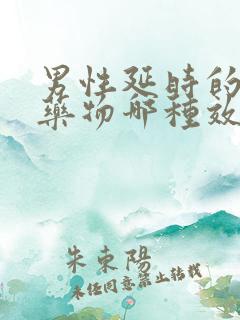 男性延時的
藥物哪種效
朱東陽
未經同意禁止轉載